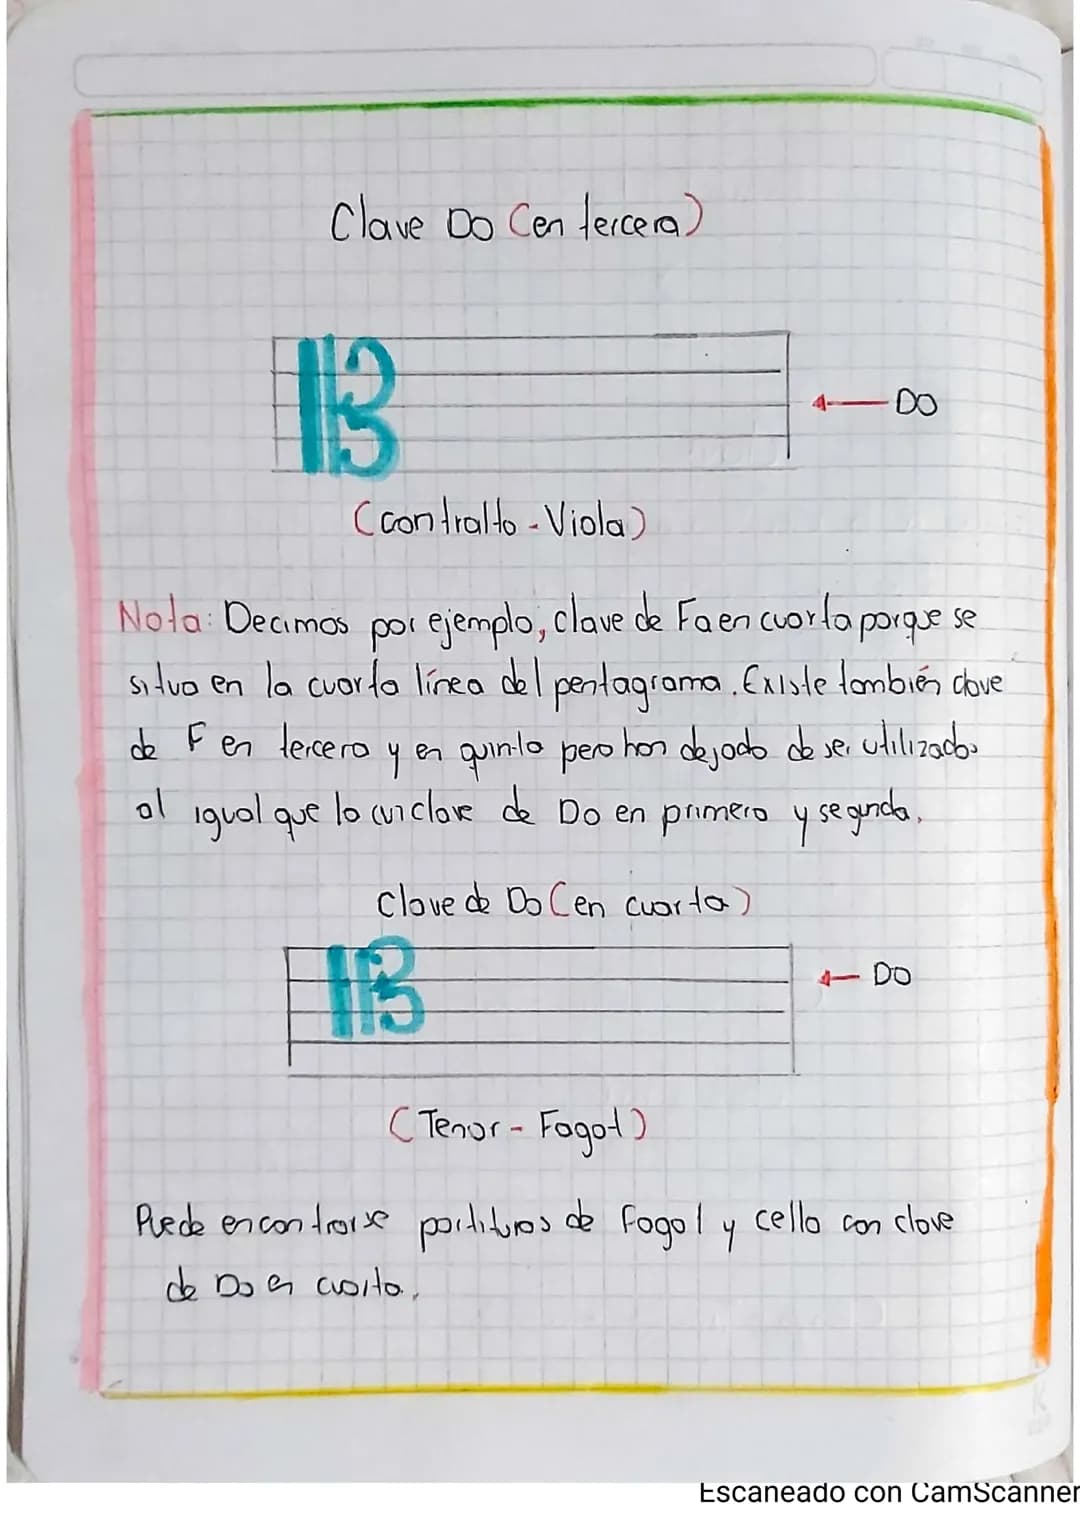 Clave Do (en tercera)
DO
(contralto - Viola)
Nota: Decimos por ejemplo, clave de Fa en cuarta porque se
situa en la cuarta línea del pentagrama. Existe también clave
de F en tercera y en quinta pero han dejado de ser utilizados
al igual que la clave de Do en primera y segunda.
Clave de Do (en cuarta)
DO
(Tenor - Fagot)
Puede encontrarse partituras de fagot y cello con clave
de Do en cuarta.
Escaneado con CamScanner